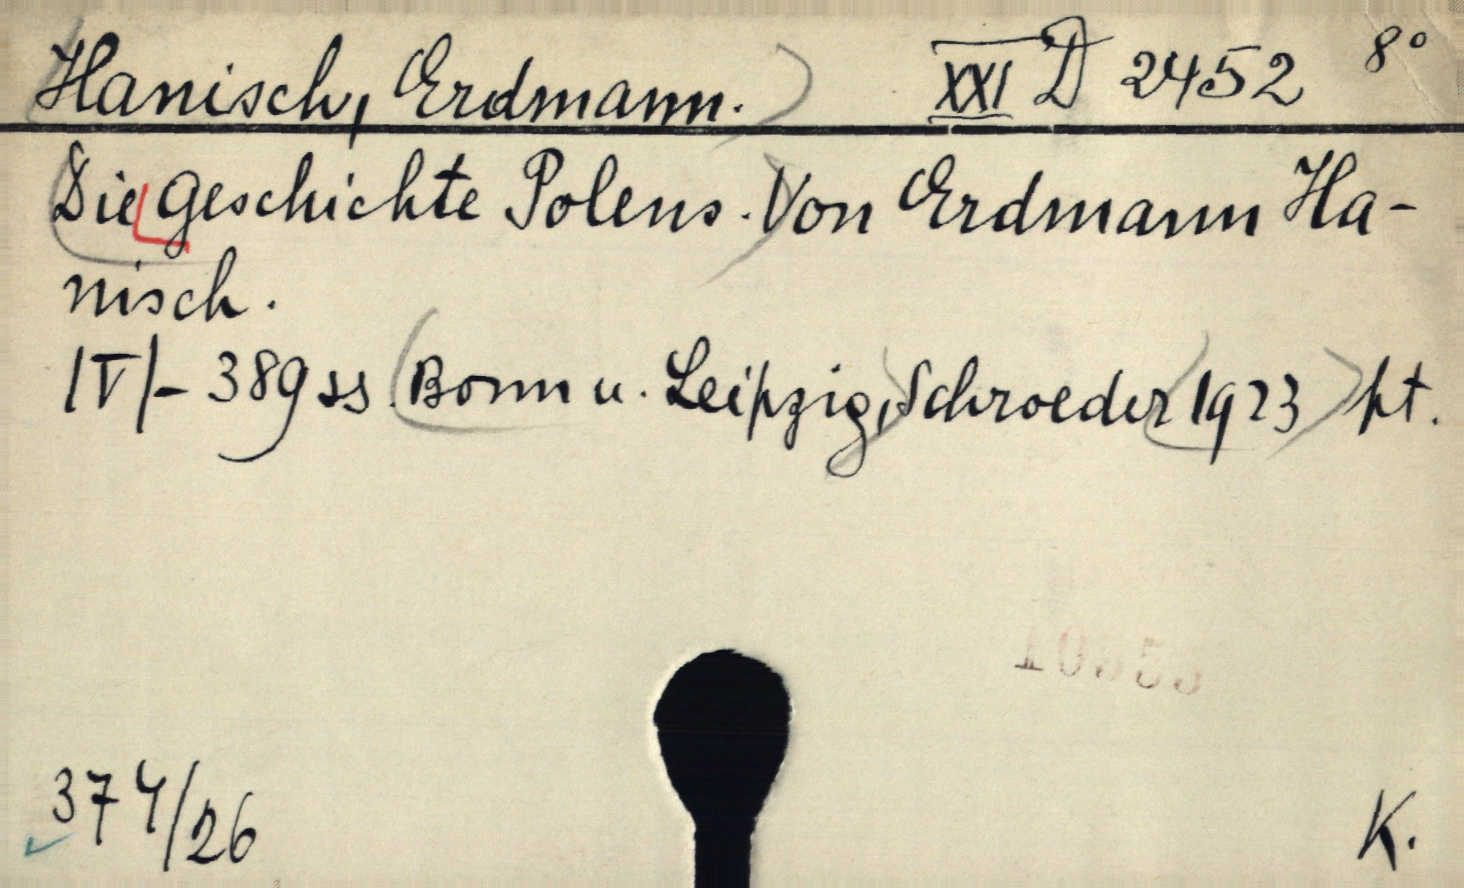 Hanisch, Erdmann. XXI D 2452 8°
Die Geschichte Polens. Von Erdmann Ha-
nisch.
|V|- 389 ss. Bonn u. Leipzig, Schroeder 1923 pt.
374/26
K.